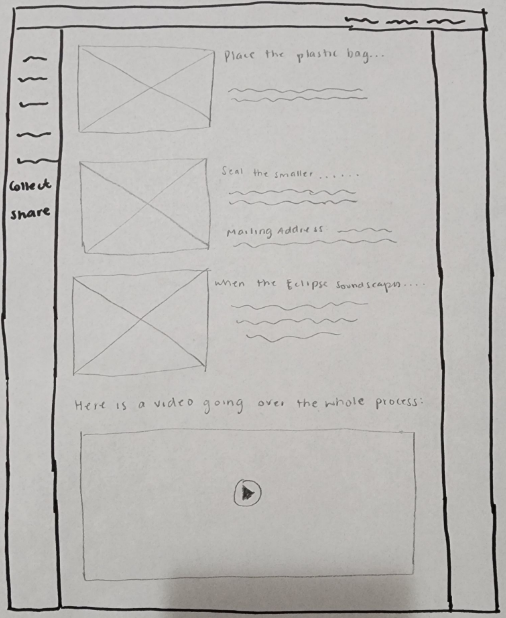 Collect
Share
Place the plastic bag...
Seal the smaller......
Mailing Address
When the Eclipse Soundscapes....
Here is a video going over the whole process: